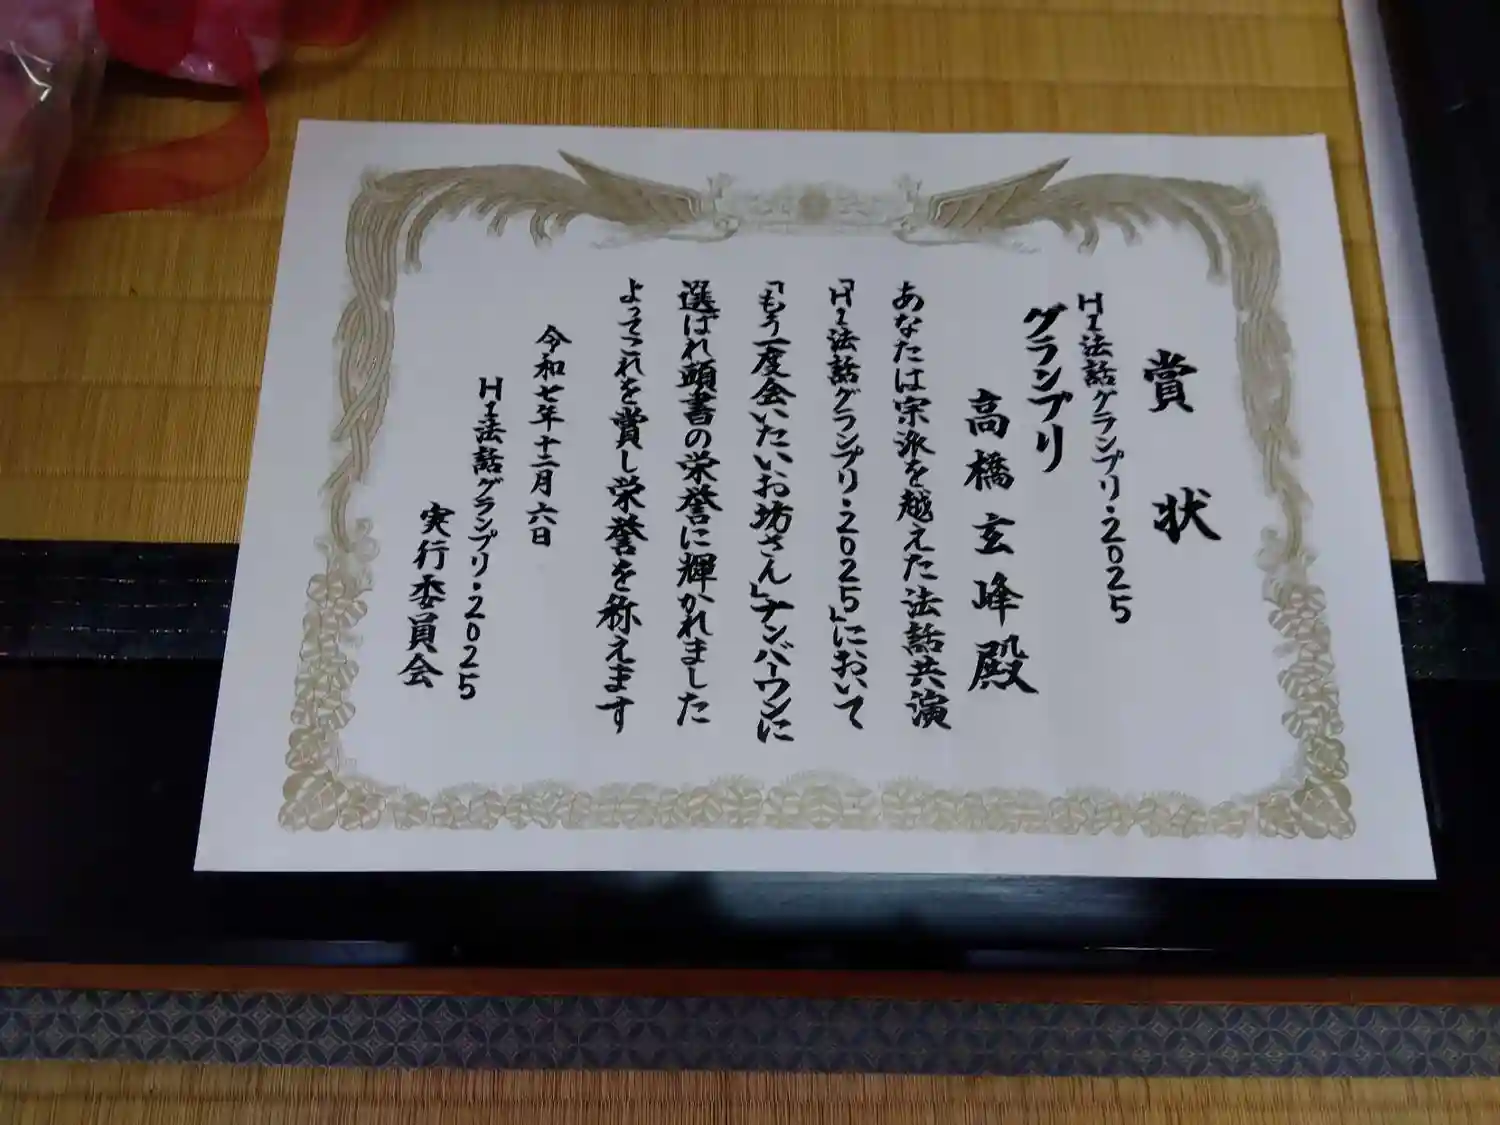 賞状
H1法話グランプリ・2025
グランプリ
高橋玄峰殿
あなたは宗派を越えた法話共演
「H1法話グランプリ・2025」において
「もう一度会いたいお坊さん」ナンバーワンに
選ばれ頭書の栄誉に輝かれました
よってこれを賞し栄誉を称えます
令和七年十二月六日
H1法話グランプリ・2025
実行委員会